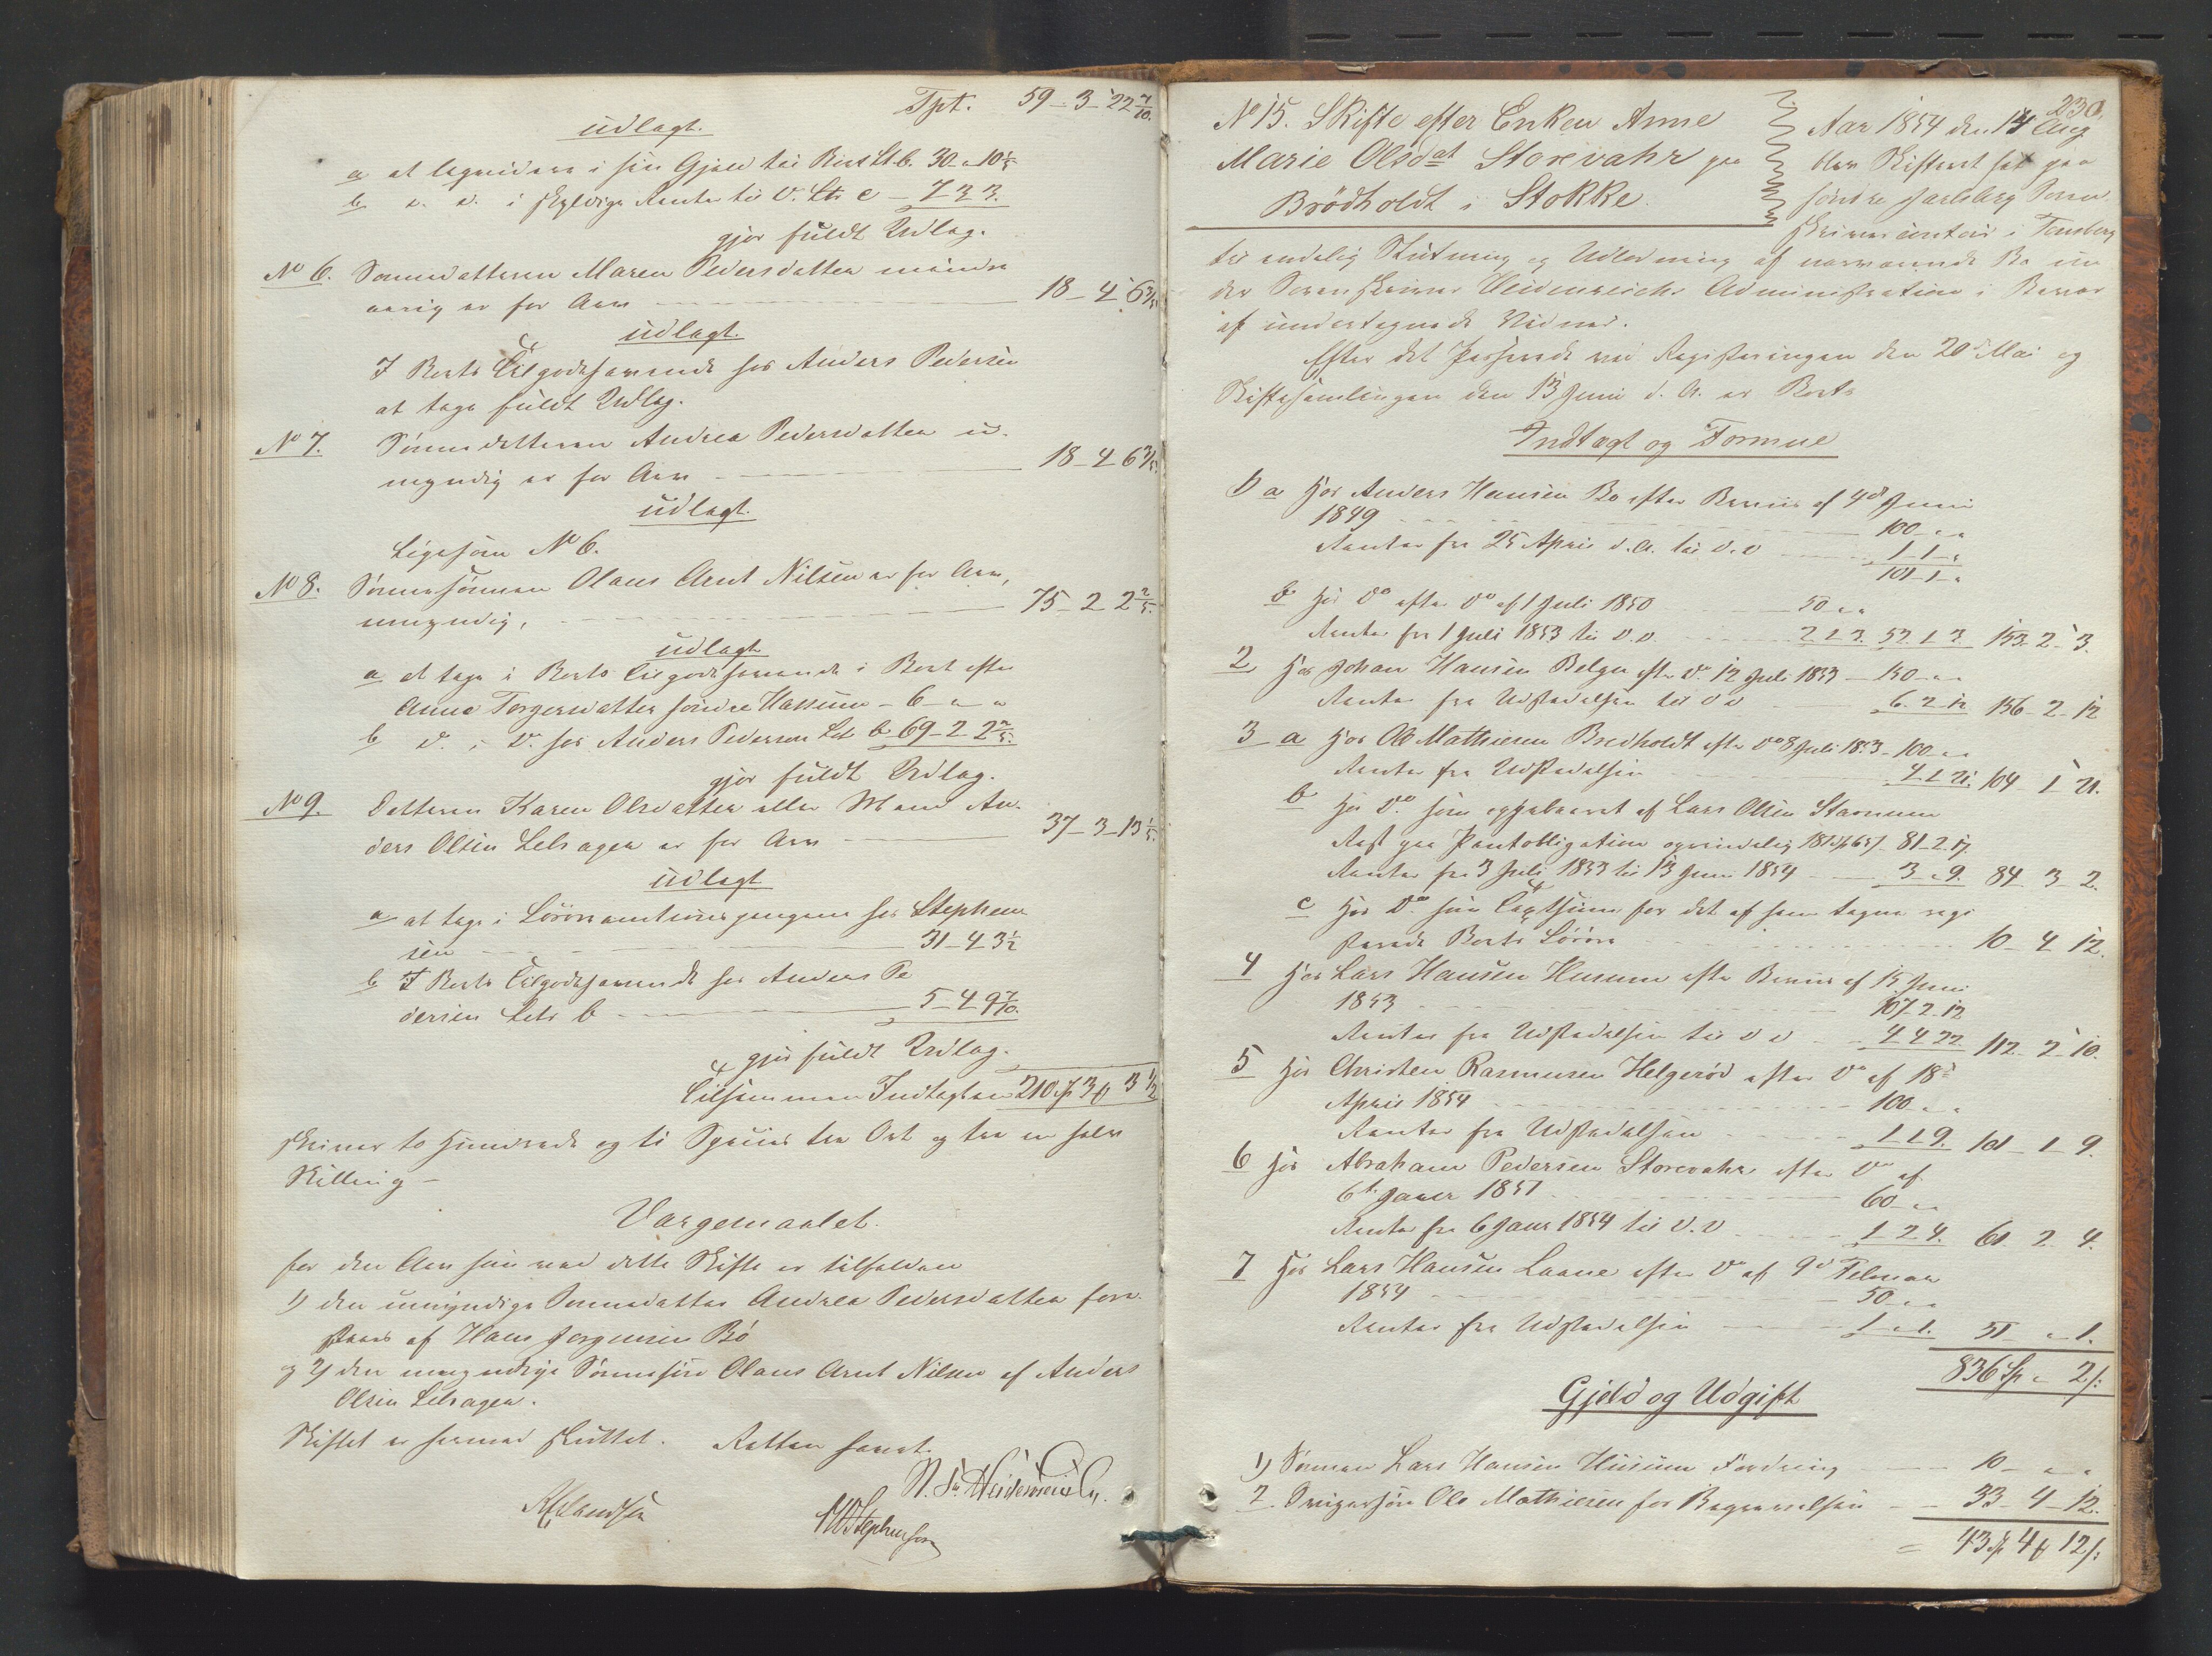 Tpt. 59-3-22 7/10.
udlagt.
a at liqvidere i sin Gjæld til Boet Lt b. 30 " 10 1/5
b d. d. i skyldige Renter til d. Ltr c - 7 3 3.
gjør fuldt Udlæg.
No 6. Sønnedatteren Maren Pedersdatter mindre
aarig er for Arv 18-4-6 3/5
udlagt.
I Boets Tilgodehavende hos Anders Pedersen
at tage fuldt Udlæg.
No 7. Sønnedatteren Andrea Pedersdatter u-
myndig er for Arv 18-4 6 3/5.
udlagt.
Ligesom No 6.
No 8. Sønnesønnen Olaus Arnt Nilsen er for Arv,
umyndig, 75-2 2 2/5.
udlagt
a at tage i Boets Tilgodehavende i Boet efter
Anne Torgersdatter søndre Hassum - 6 - " "
b d. i d. hos Anders Pedersen Ltr b 69-2 2 2/5.
gjør fuldt Udlæg.
No 9. Datteren Karen Olsdatter eller Mand An-
ders Olsen Lelsager er for Arv 37-3-13 1/5.
udlagt
a at tage i Løsøreauctionspengene hos Stephen-
sen 31-4 3 1/2
b I Boets Tilgodehavende hos Anders Pe
dersen Ltr b 5-4 9 7/10.
gjør fuldt Udlæg.
Tilsammen Indtægten 210 Sp 3 ß 3 1/2
skriver to Hundrede og ti Species tre Ort og tre en halv
Skilling -
Værgemaalet.
for den Arv som ved dette Skifte er tilfalden
1) den umyndige Sønnedatter Andrea Pedersdatter fore-
staaes af Hans Jørgensen Bø
og 2) den umyndige Sønnesøn Olaus Arnt Nilsen af Anders
Olsen Lelsager.
Skiftet er hermed sluttet. Retten hævet.
N. S. Heidenreich.
Stephensen
230.
No 15. Skifte efter Enken Anne
Marie Olsdat Storevahr paa
Brødholdt i Stokke.
Aar 1854 den 14 Aug
blev Skifteret sat paa
søndre Jarlsberg Soren
skrivercontoir i Tønsberg
til endelig Slutning og Udlodning af nærværende Bo un
der Sorenskriver Heidenreichs Administration i Overvær
af undertegnede Vidner.
Efter det Passerede ved Registreringen den 20d Mai og
Skiftesamlingen den 13 Juni d. A. er Boets
Indtægt og Formue
1) a Hos Anders Hansen Bø efter Beviis af 4d Juni
1849 100 " "
Renter fra 25 April d. A. til d. d 1-1-"
101-1-"
b Hos do efter do af 1 Juli 1850 50 " "
Renter fra 1 Juli 1853 til d.d. 2 1 3. 52. 1 3. 153-2-3.
2 Hos Johan Hansen Belgen efter do 12 Juli 1853 - 150 - "
Renter fra Udstedelsen til d d 6. 2-12 156-2-12
3 a Hos Ole Mathiesen Bredholdt efter do 8 Juli 1853 - 100 "
Renter fra Udstedelsen 4 1 21. 104-1-21.
b Hos do. som overtaget af Lars Olsen Stavnum
Rest paa Pantobligation oprindelig 81-2-17.
Renter fra 3 Juli 1853 til 13 Juni 1854 3 " 9. 84 3-2.
c Hos do. for det af ham tagne regi
strerede Boets Løsøre 10-4 12.
4 Hos Lars Hansen Husum efter Beviis af 15 Juni
1853 107 2-12
Renter fra Udstedelsen til d d 4 4 22. 112-2-10.
5 Hos Christen Rasmussen Helgerød efter do af 18d
April 1854 100 " "
Renter fra Udstedelsen 1 1 9. 101-1-9.
6 Hos Abraham Pedersen Storevahr efter do af
6te Januar 1851 60 "
Renter fra 6 Janr 1854 til d.d 1-2 4. 61 2-4.
7 Hos Lars Hansen Laane efter do af 9d Februar
1854 50 " "
Renter fra Udstedelsen 1 " 1. 51 " 1.
836 Sp " 2 ß
Gjeld og Udgift
1) Sønnen Lars Hansen Husum Fordring 10 - " "
2 Svigersøn Ole Mathiesen for Begravelsen - 33-4-12.
= 43 Sp 4 ß 12 ß